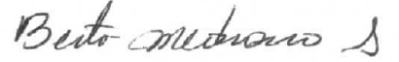 Berto Medrano S